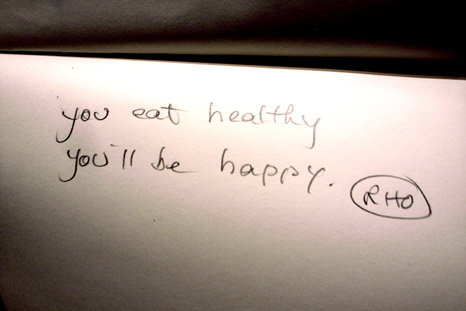 you eat healthy
you'll be happy.
RHO